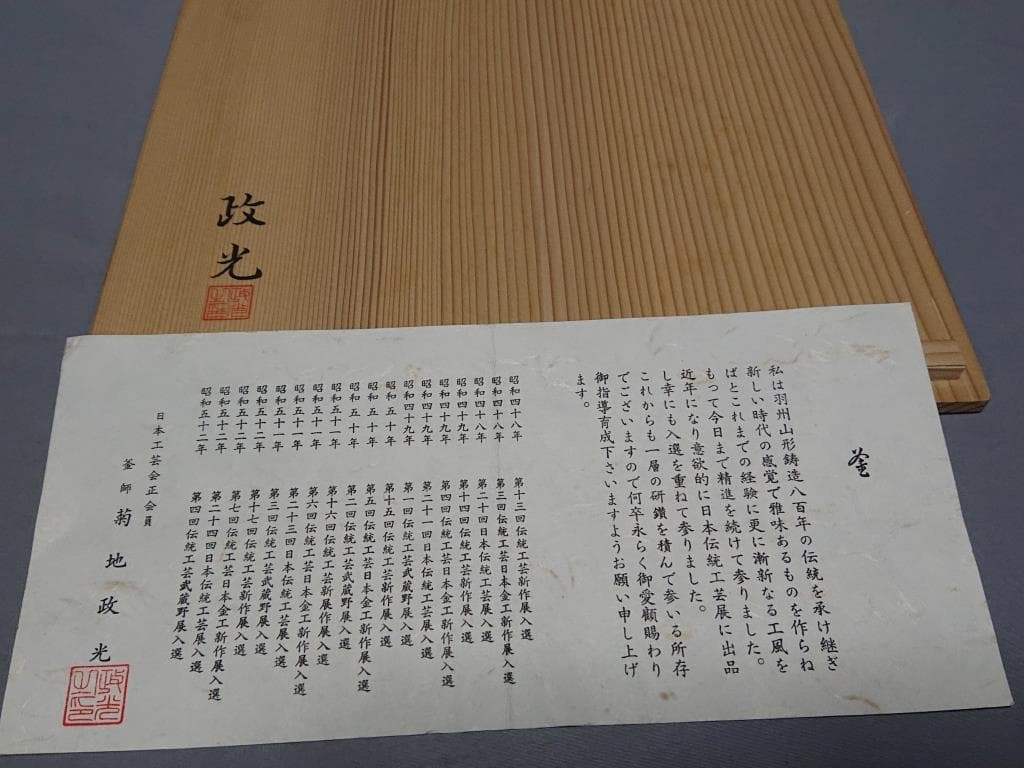 政光
釜
私は羽州山形鋳造八百年の伝統を承け継ぎ
新しい時代の感覚で雅味あるものを作らね
ばとこれまでの経験に更に漸新なる工風を
もって今日まで精進を続けて参りました。
近年になり意欲的に日本伝統工芸展に出品
し幸にも入選を重ねて参りました。
これからも一層の研鑽を積んで参いる所存
でございますので何卒永らく御愛顧賜わり
御指導育成下さいますようお願い申し上げ
ます。
昭和四十八年 第十三回伝統工芸新作展入選
昭和四十八年 第三回伝統工芸日本金工新作展入選
昭和四十八年 第二十回日本伝統工芸展入選
昭和四十九年 第十四回伝統工芸新作展入選
昭和四十九年 第四回伝統工芸日本金工新作展入選
昭和四十九年 第二十一回日本伝統工芸展入選
昭和四十九年 第一回伝統工芸武蔵野展入選
昭和五十年 第十五回伝統工芸新作展入選
昭和五十年 第五回伝統工芸日本金工新作展入選
昭和五十年 第二回伝統工芸武蔵野展入選
昭和五十一年 第十六回伝統工芸新作展入選
昭和五十一年 第六回伝統工芸日本金工新作展入選
昭和五十一年 第二十三回日本伝統工芸展入選
昭和五十一年 第三回伝統工芸武蔵野展入選
昭和五十二年 第十七回伝統工芸新作展入選
昭和五十二年 第七回伝統工芸日本金工新作展入選
昭和五十二年 第二十四回日本伝統工芸展入選
昭和五十二年 第四回伝統工芸武蔵野展入選
日本工芸会正会員
釜師 菊地政光
政光之印